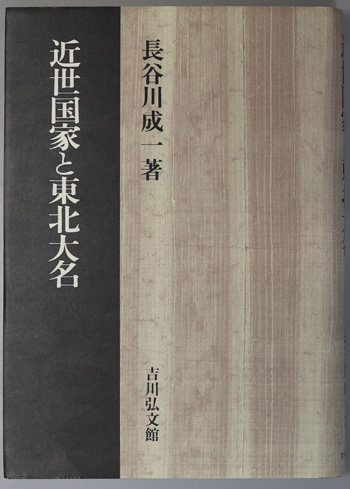 近世国家と東北大名
長谷川成一著
吉川弘文館